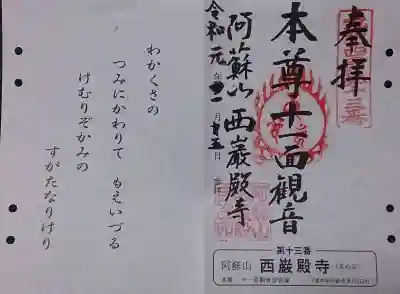 奉拝
本尊十一面観音
阿蘇山 西巖殿寺
令和元年十一月十五日
わかくさの
つみにかわりて もえいづる
けむりぞかみの
すがたなりけり
第十三番
阿蘇山 西巌殿寺